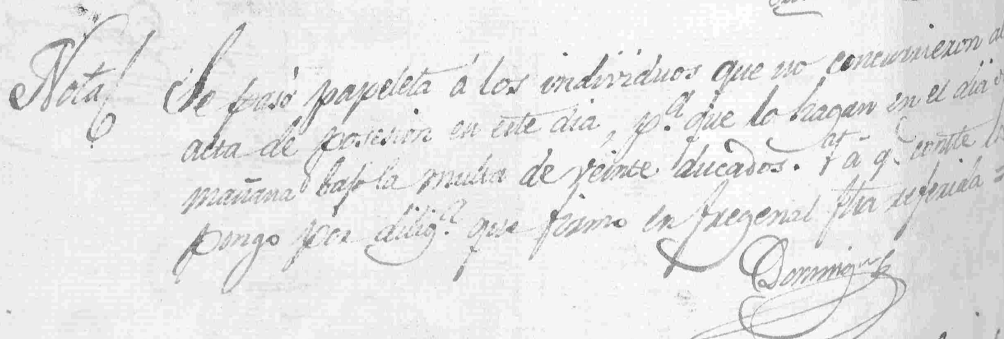 Nota Se pasó papeleta á los individuos que no concurrieron al
acta de posesion en este dia, p.a que lo hagan en el dia de
mañana bajo la multa de veinte ducados. Y á q.e conste lo
pongo por dilig.a que firmo en Fregenal fha referida =
Doming.z